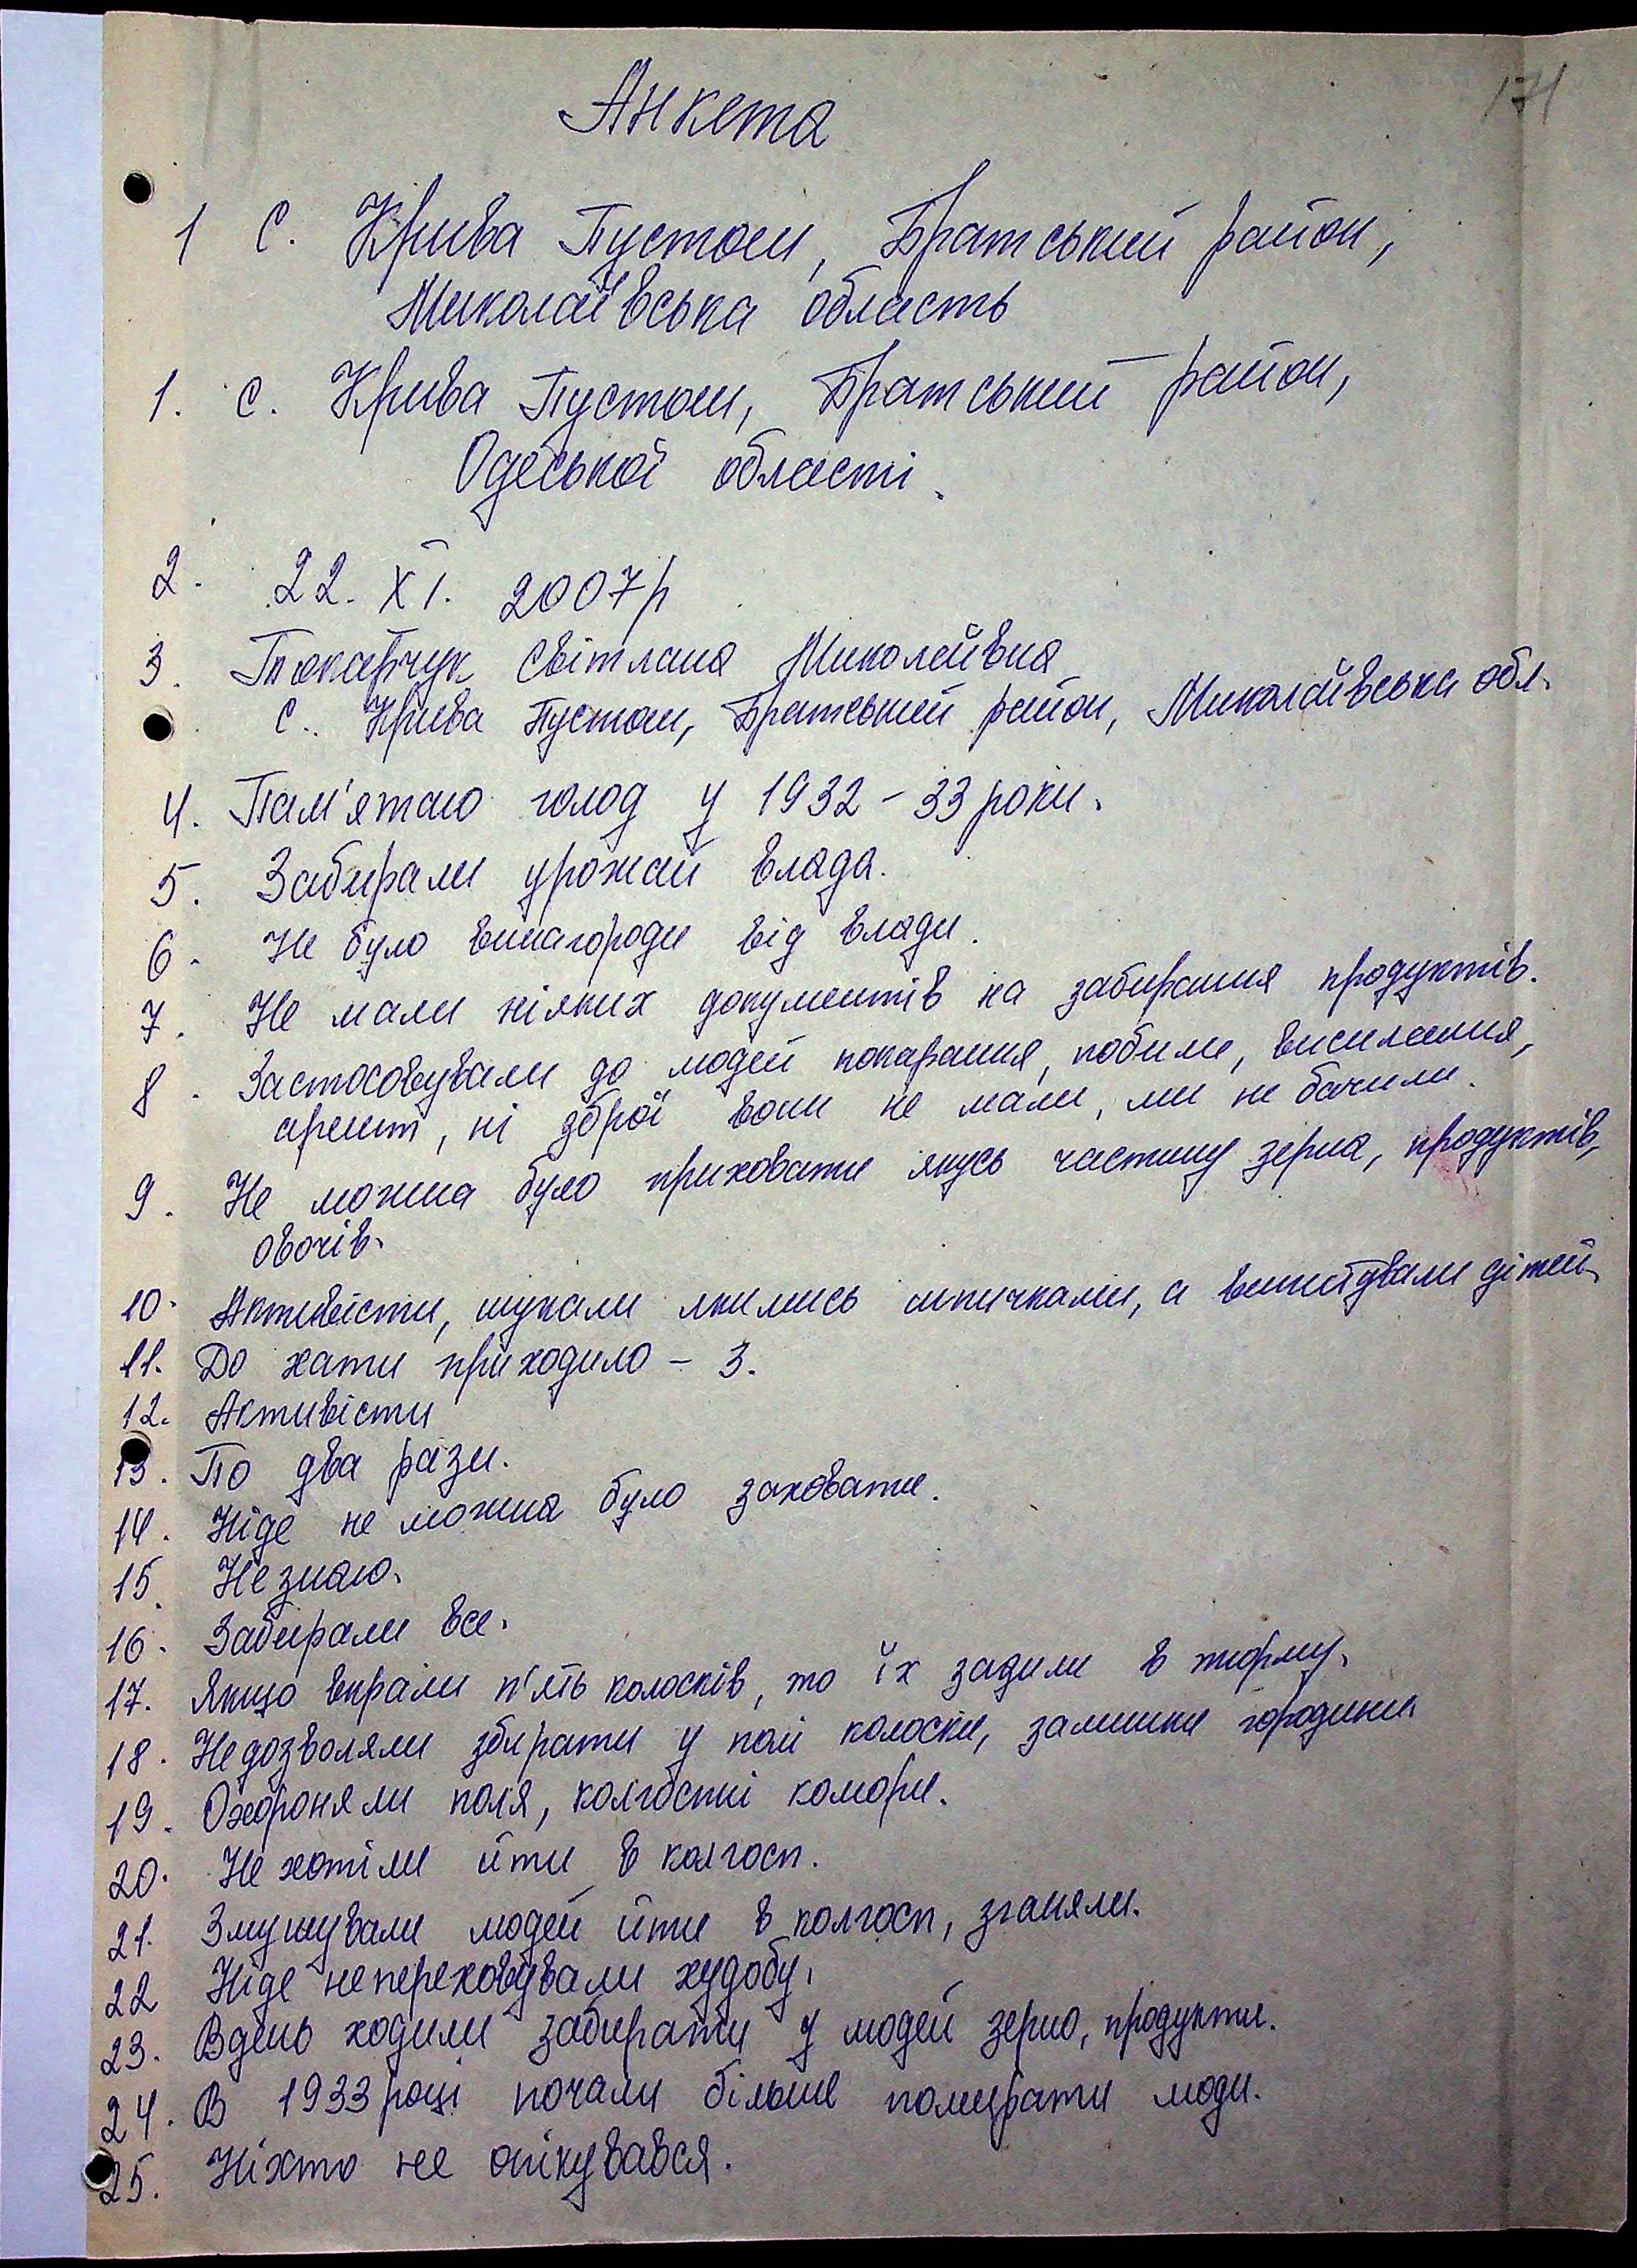 171
Анкета
1 С. Крива Пустош, Братський район,
Миколаївська область
1. с. Крива Пустош, Братський район,
Одеської області.
2. 22. XI. 2007р
3. Токарчук Світлана Миколаївна
с. Крива Пустош, Братський район, Миколаївська обл.
4. Пам'ятаю голод у 1932-33 роки.
5. Забирали урожай влада.
6. Не було винагороди від влади.
7. Не мали ніяких документів на забирання продуктів.
8. Застосовували до людей покарання, побили, висилання,
арешт, ні зброї вони не мали, ми не бачили.
9. Не можна було приховати якусь частину зерна, продуктів,
овочів.
10. Активісти, шукали якимись шпичками, а випитували дітей.
11. До хати приходило - 3.
12. Активісти
13. По два рази.
14. Ніде не можна було заховати.
15. Не знаю.
16. Забирали все.
17. Якщо вкрали п'ять колосків, то їх задили в тюрму.
18. Недозволяли збирати у полі колоски, залишки городини.
19. Охороняли поля, колгоспні комори.
20. Не хотіли йти в колгосп.
21. Змушували людей йти в колгосп, зганяли.
22 Ніде непереховували худобу.
23. Вдень ходили забирати у людей зерно, продукти.
24. В 1933 році почали більше помирати люди.
25. Ніхто не опікувався.